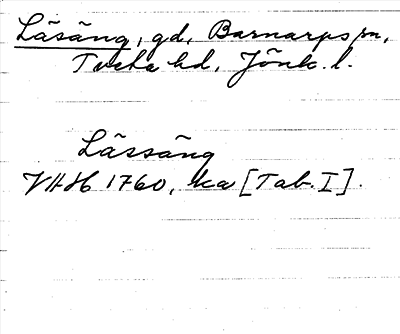 Läsäng, gd, Barnarps sn,
Tveta hd, Jönk. l.
Lässäng
VHH 1760, ka [Tab. I].